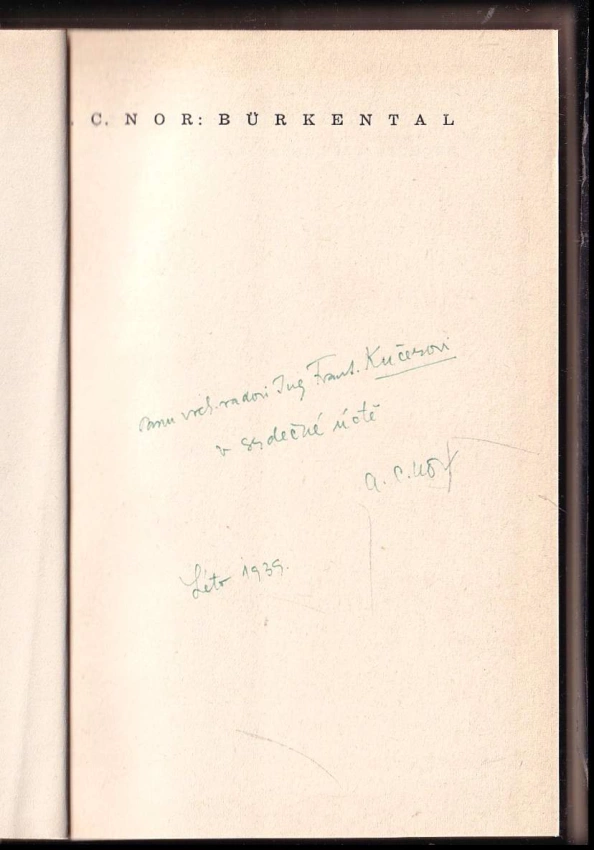 . C. NOR: BÜRKENTAL
panu vrch. radovi Ing Frant. Kučerovi
v srdečné úctě
A. C. Nor
Léto 1939.